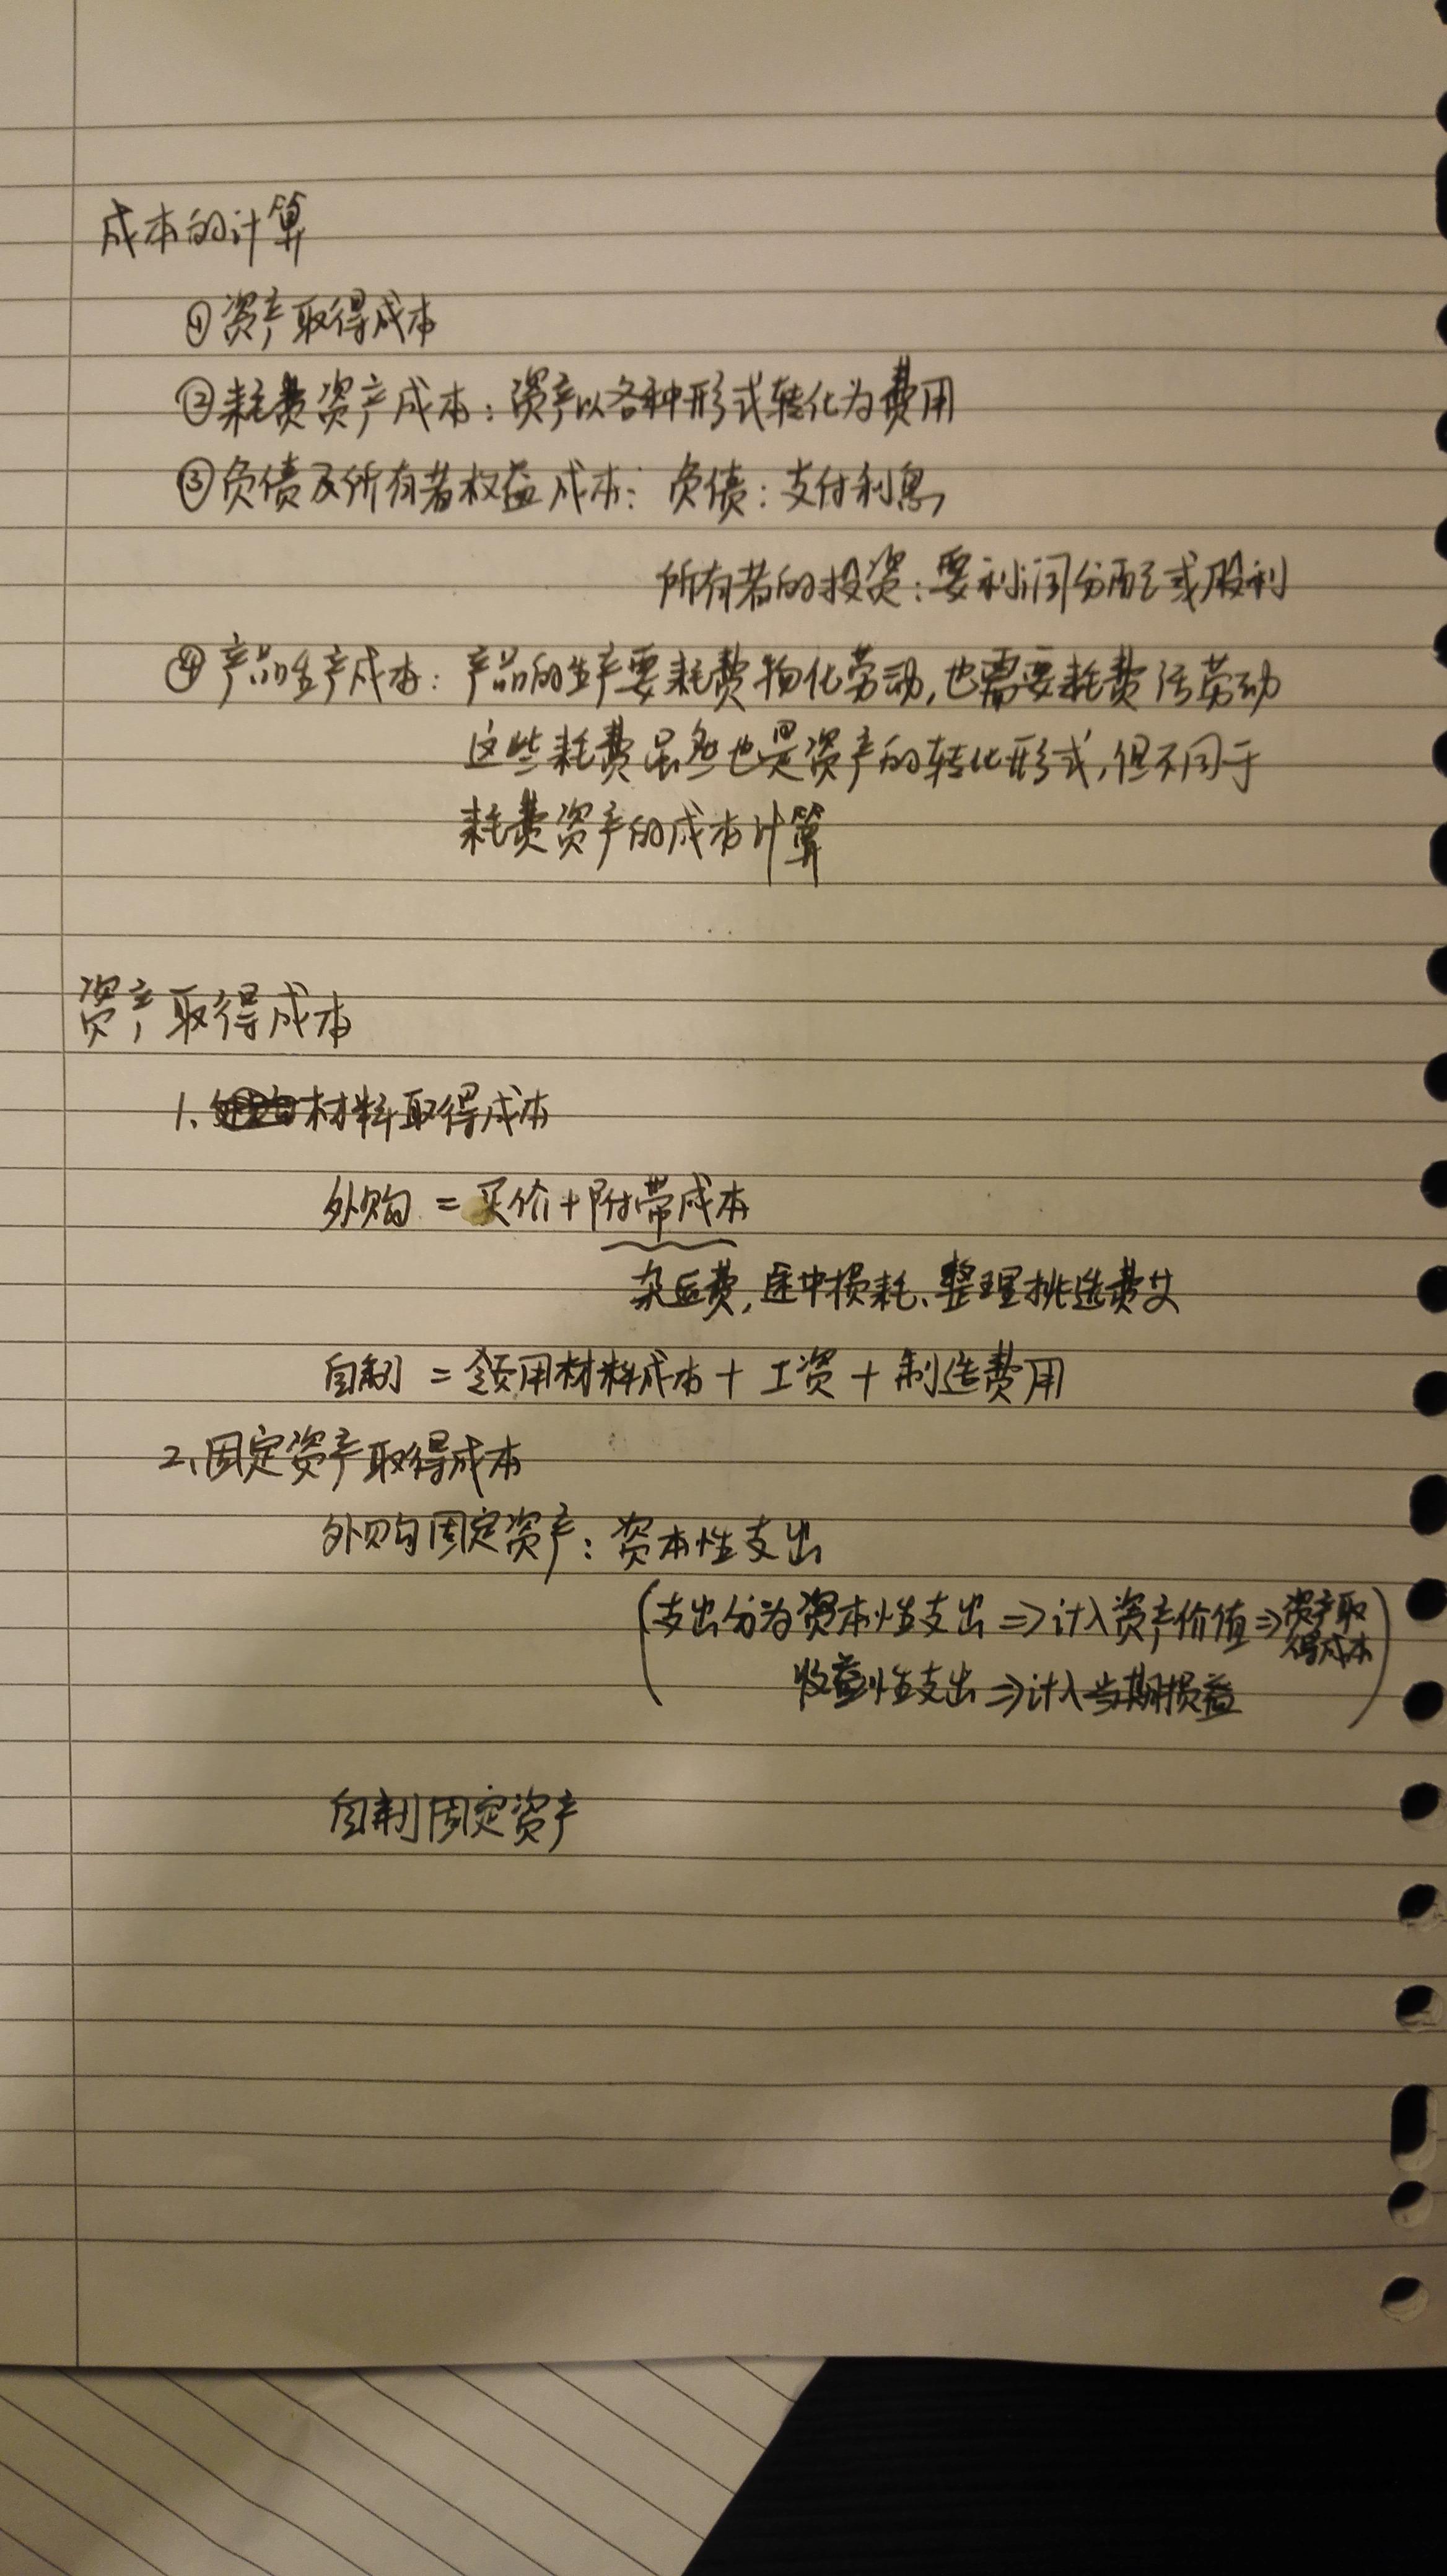 成本的计算
①资产取得成本
②耗费资产成本：资产以各种形式转化为费用
③负债及所有者权益成本：负债：支付利息
所有者的投资：要利润分配或股利
④产品生产成本：产品的生产要耗费物化劳动，也需要耗费活劳动
这些耗费虽然也是资产的转化形式，但不同于
耗费资产的成本计算
资产取得成本
1、材料取得成本
外购 = 买价+附带成本
杂运费，途中损耗、整理挑选费
自制 = 领用材料成本 + 工资 + 制造费用
2、固定资产取得成本
外购固定资产：资本性支出
（支出分为资本性支出 => 计入资产价值 => 资产取
得成本
收益性支出 => 计入当期损益）
自制固定资产